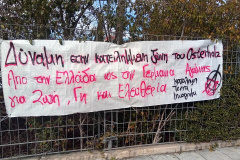 Δύναμη στην κατειλημμένη ζώνη του Osterholz
Από την Ελλάδα ως την Γερμανία Αγώνας
για Ζωή, Γη και Ελευθερία
Κατάληψη
Terra
Incognita